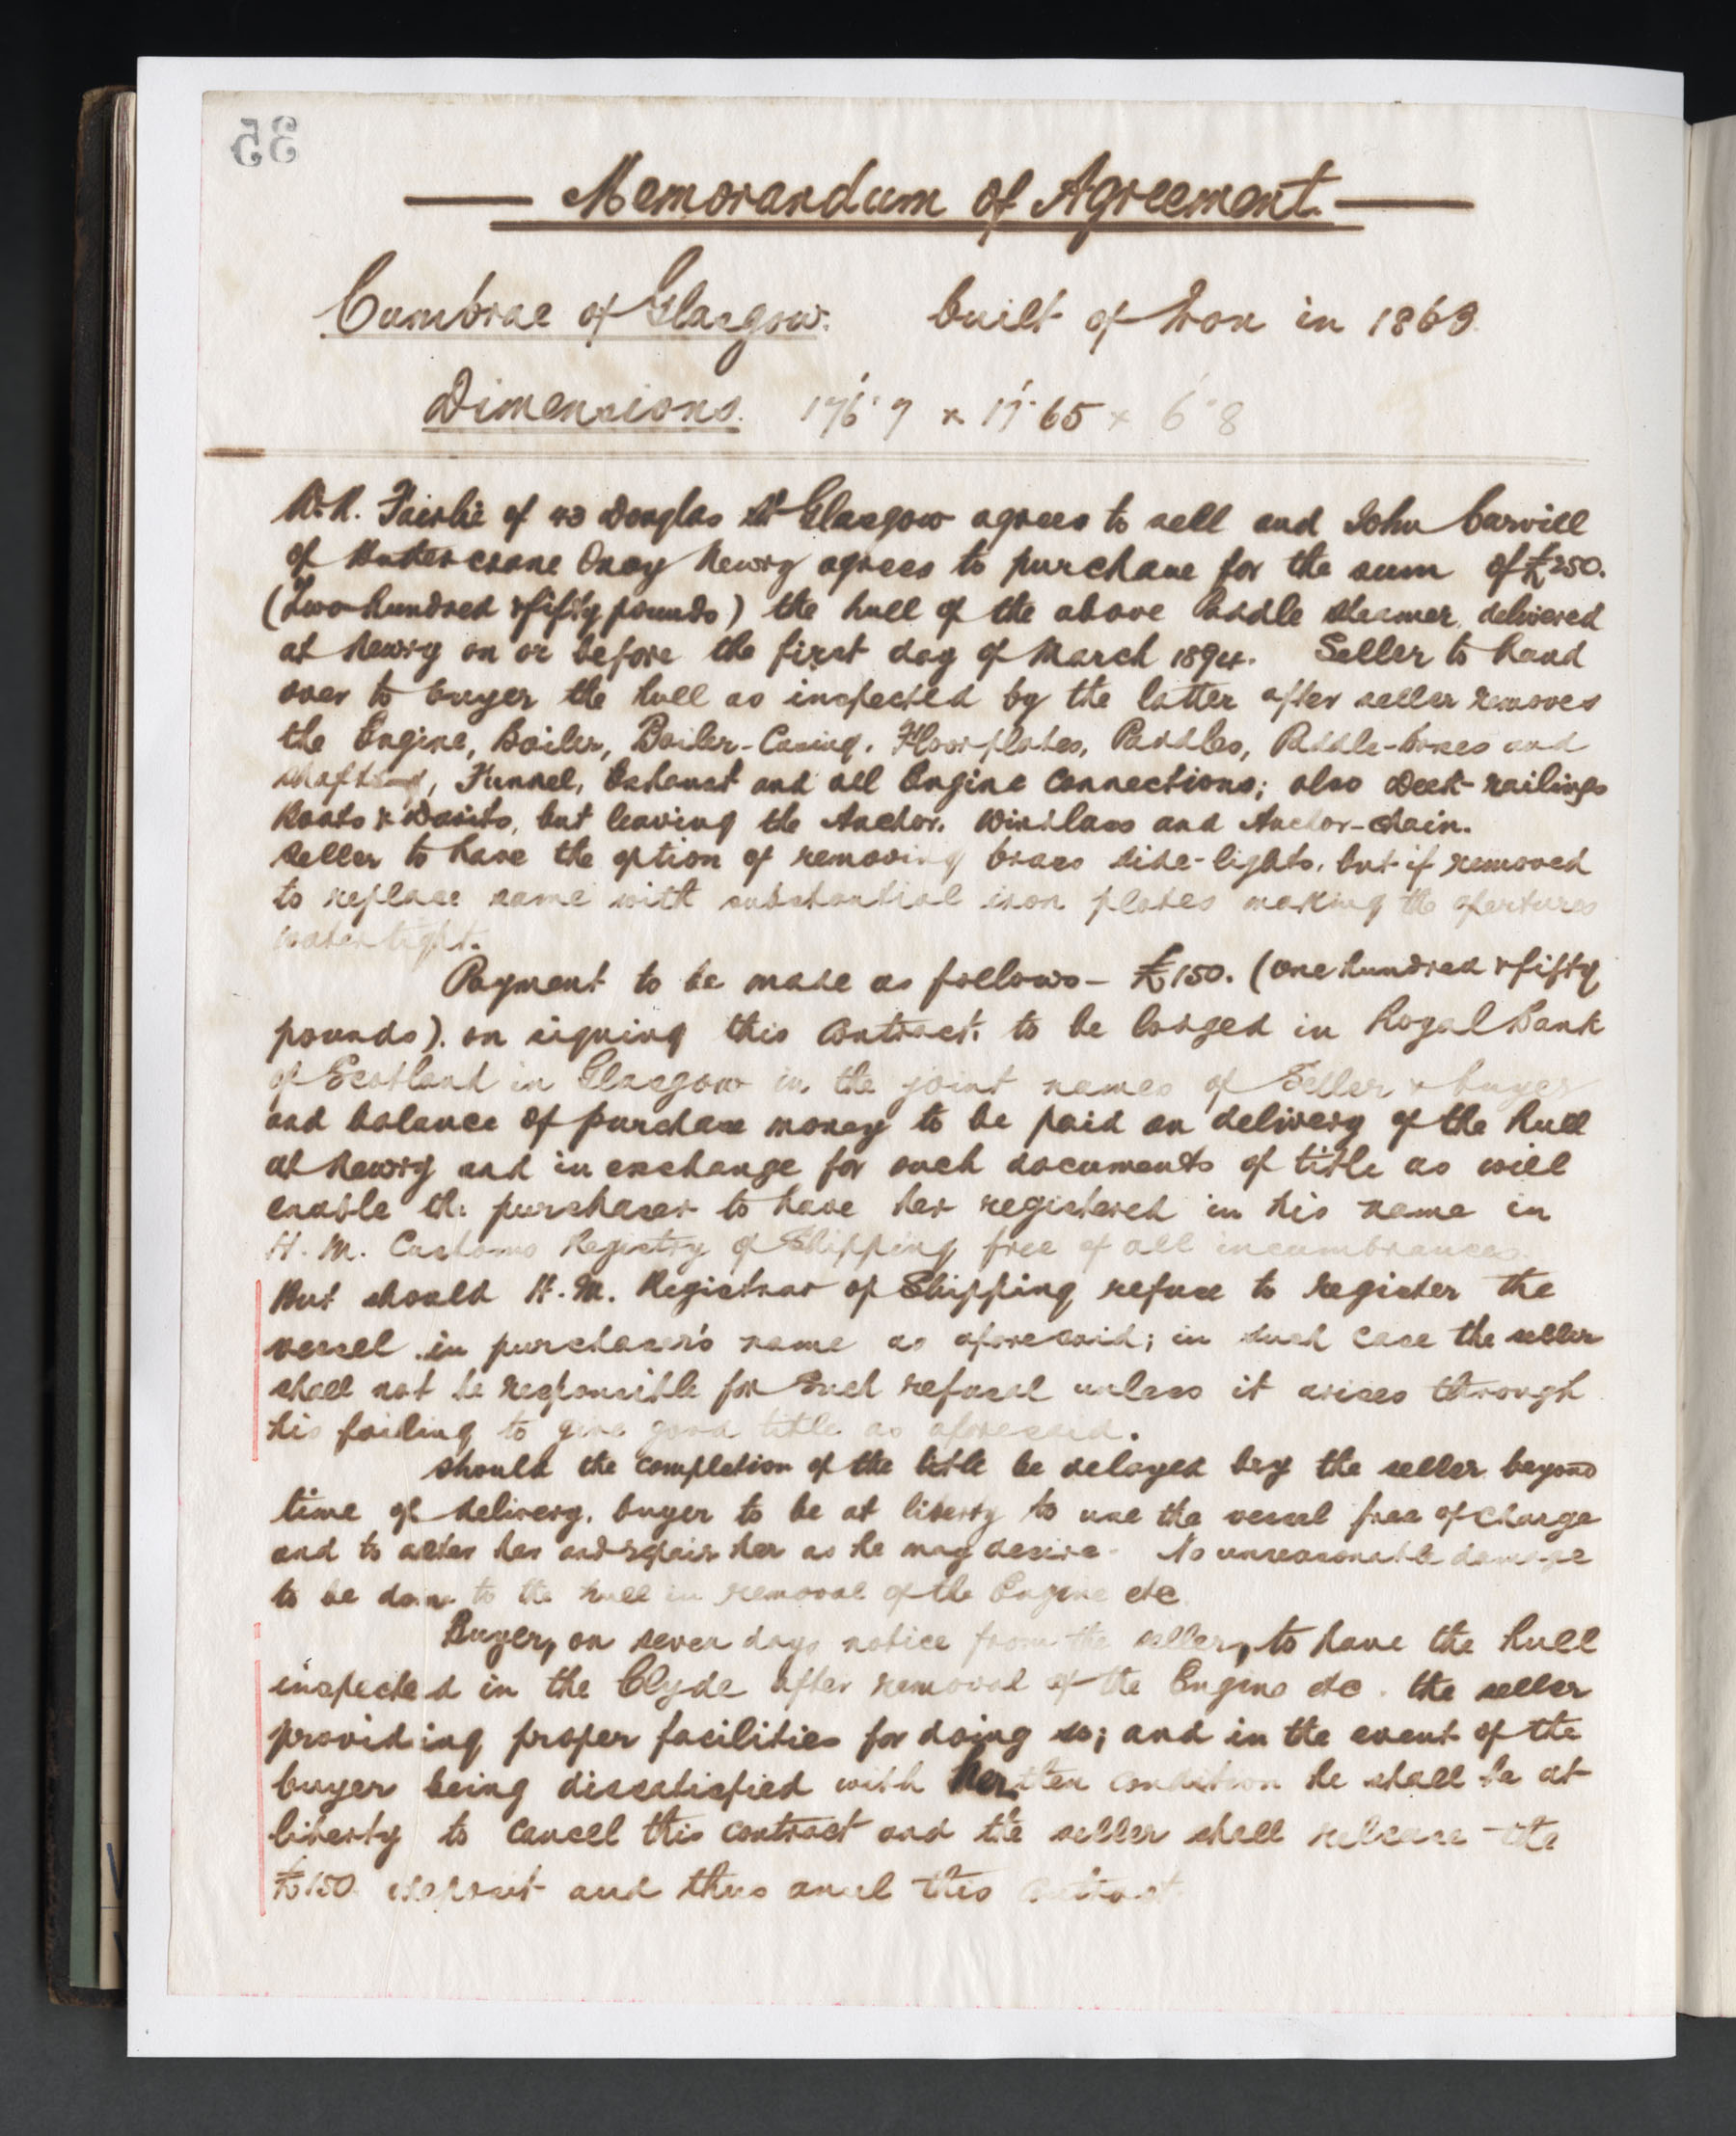 35
Memorandum of Agreement.
Cumbrae of Glasgow. built of Iron in 1863.
Dimensions. 176'.7 x 17'.65 x 6'.8
Fairlie of 43 Douglas St Glasgow agrees to sell and John Carvill
of Buttercrane Quay Newry agrees to purchase for the sum of £250.
(Two hundred & fifty pounds) the hull of the above Paddle Steamer, delivered
at Newry on or before the first day of March 1894. Seller to hand
over to buyer the hull as inspected by the latter after seller removes
the Engine, Boiler, Boiler-Casing, Floorplates, Paddles, Paddle-boxes and
shafting, Funnel, Exhaust and all Engine Connections; also Deck-railings
Boats & Davits, but leaving the Anchor, Windlass and Anchor-chain.
Seller to have the option of removing brass side-lights, but if removed
to replace same with substantial iron plates making the apertures
watertight.
Payment to be made as follows - £150. (One hundred & fifty
pounds). on signing this contract, to be lodged in Royal Bank
of Scotland in Glasgow in the joint names of Seller & buyer
and balance of purchase money to be paid on delivery of the hull
at Newry and in exchange for such documents of title as will
enable the purchaser to have her registered in his name in
H. M. Customs Registry of Shipping free of all incumbrances.
But should H. M. Registrar of Shipping refuse to register the
vessel in purchaser's name as aforesaid; in such case the seller
shall not be responsible for such refusal unless it arises through
his failing to give good title as aforesaid.
Should the completion of the title be delayed by the seller beyond
time of delivery, buyer to be at liberty to use the vessel free of charge
and to alter her and repair her as he may desire. No unreasonable damage
to be done to the hull in removal of the Engine etc.
Buyer, on seven days notice from the seller, to have the hull
inspected in the Clyde after removal of the Engine etc. the seller
providing proper facilities for doing so; and in the event of the
buyer being dissatisfied with her then condition he shall be at
liberty to cancel this contract and the seller shall release the
£150. deposit and thus anul this contract.